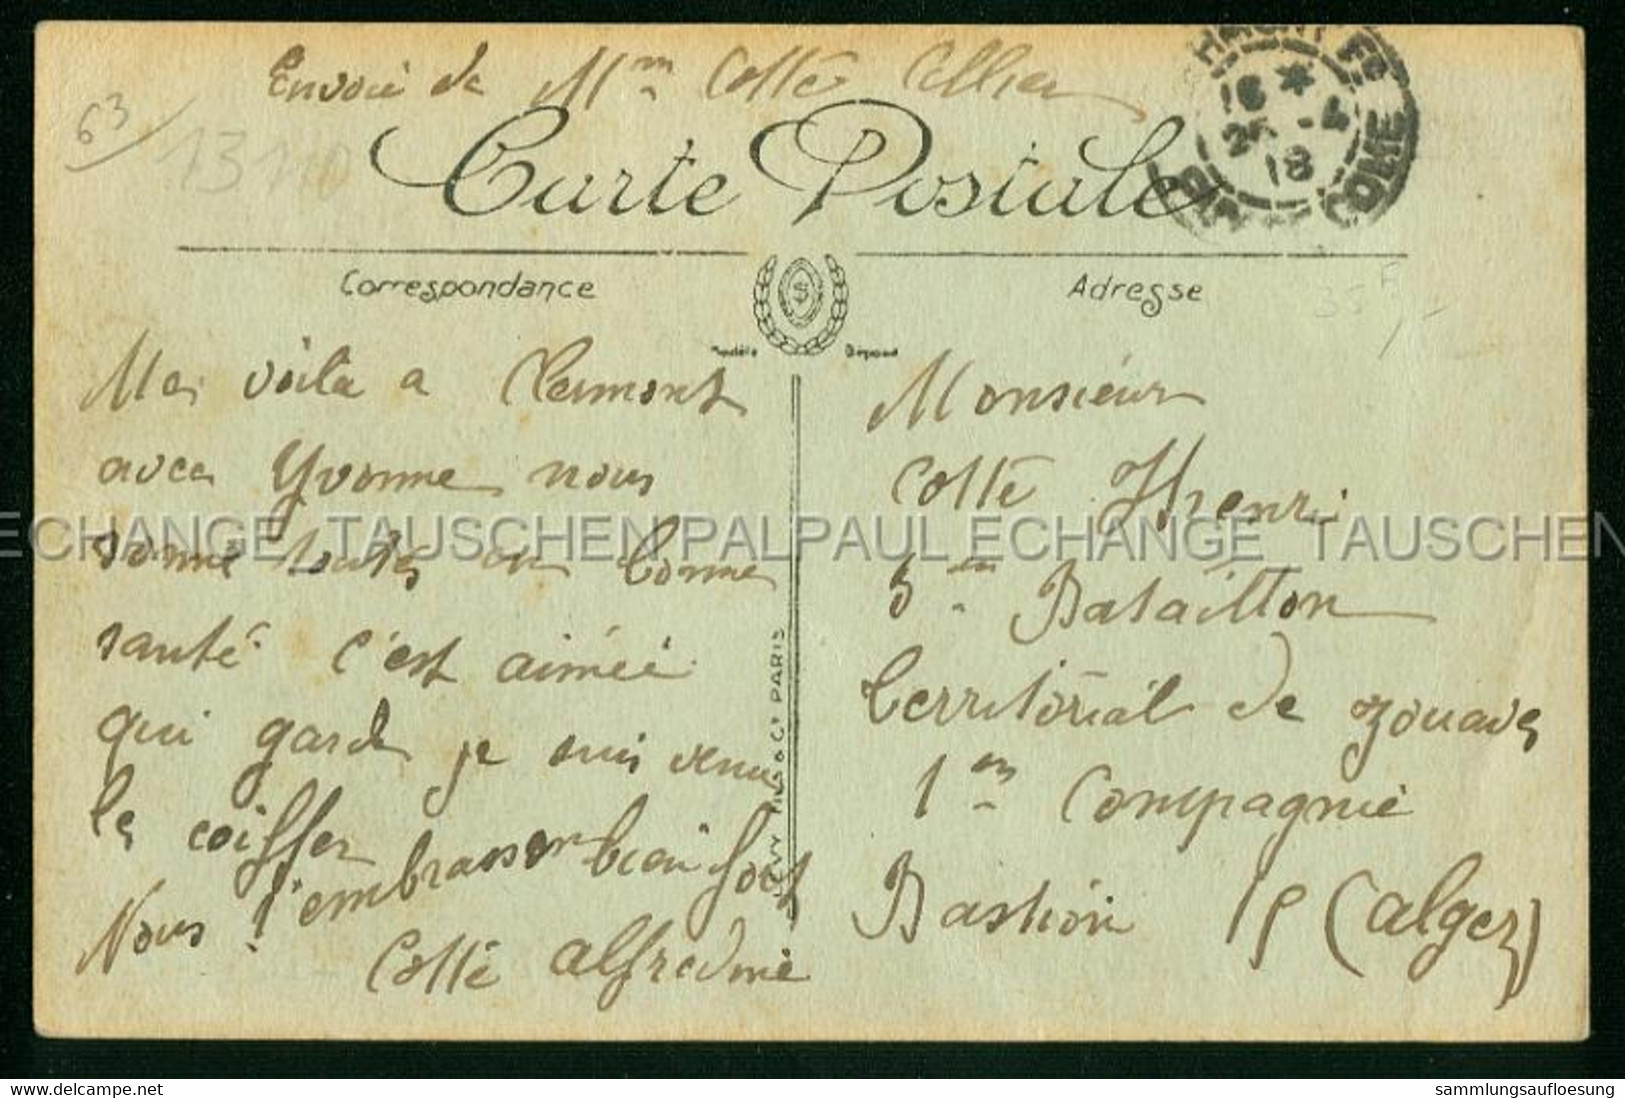 Envoie de Mm Collé Cellier
63
13110
Carte Postale
PUY-DE-DOME
16 *
25 - 4
18
Correspondance
Adresse
35 F
Modèle Déposé
Moi voila a Clermont
avec Yvonne nous
somme toutes en bonne
santé c'est aimée
qui garde je suis venu
la coiffer
Nous t'embrasson bien fort
Collé alfredine
Monsieur
Collé Henri
5 em Bataillon
territorial de zouaves
1 em Compagnie
Bastion 15 (alger)
LEVY FILS & Cie PARIS
ECHANGE TAUSCHEN PALPAUL ECHANGE TAUSCHEN
© delcampe.net
sammlungsaufloesung